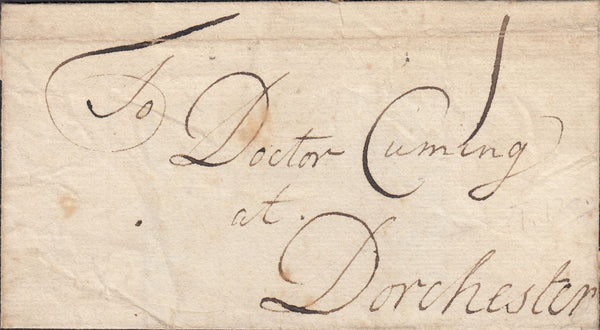 To Doctor Cuming
at
Dorchester